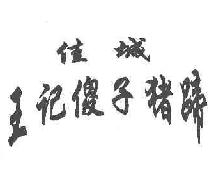 佳城
王记傻子猪蹄